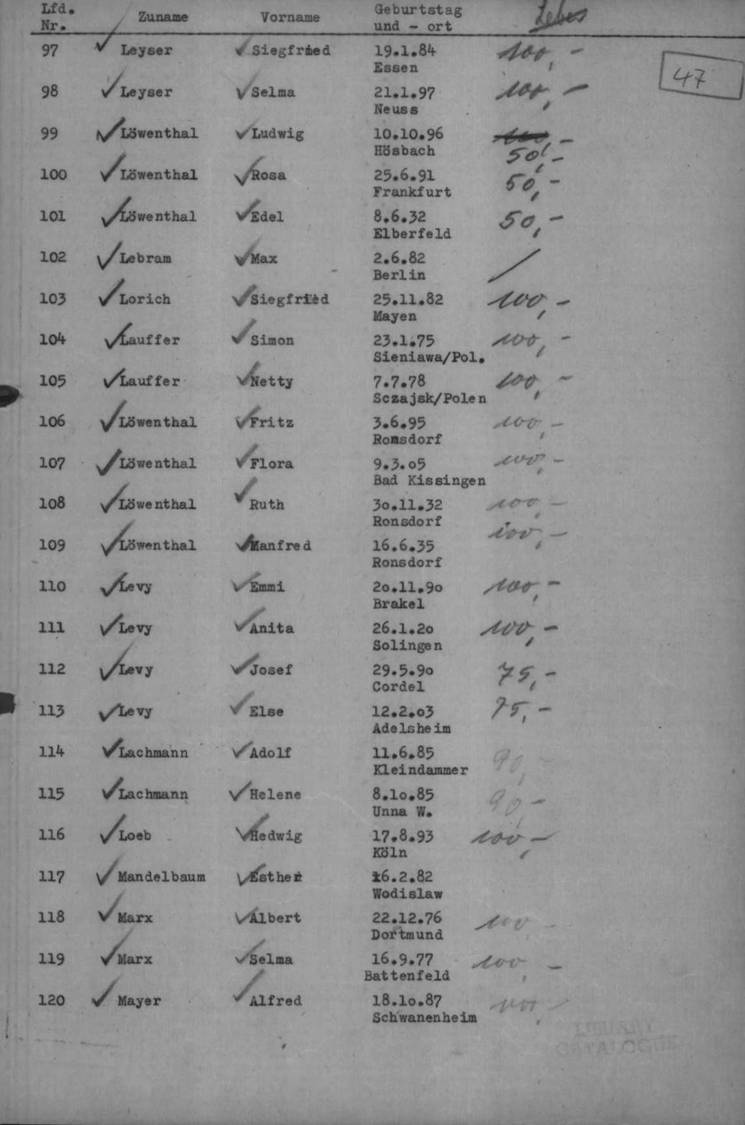 Lfd. Nr. Zuname Vorname Geburtstag und - ort
47
97 Leyser Siegfried 19.1.84 100,-
Essen
98 Leyser Selma 21.1.97 100,-
Neuss
99 Löwenthal Ludwig 10.10.96 100,-
Hösbach 50,-
100 Löwenthal Rosa 25.6.91 50,-
Frankfurt
101 Löwenthal Edel 8.6.32 50,-
Elberfeld
102 Lebram Max 2.6.82 /
Berlin
103 Lorich Siegfried 25.11.82 100,-
Mayen
104 Lauffer Simon 23.1.75 100,-
Sieniawa/Pol.
105 Lauffer Netty 7.7.78 100,-
Sczajsk/Polen
106 Löwenthal Fritz 3.6.95 100,-
Ronsdorf
107 Löwenthal Flora 9.3.o5 100,-
Bad Kissingen
108 Löwenthal Ruth 3o.11.32 100,-
Ronsdorf
109 Löwenthal Manfred 16.6.35 100,-
Ronsdorf
110 Levy Emmi 2o.11.9o 100,-
Brakel
111 Levy Anita 26.1.2o 100,-
Solingen
112 Levy Josef 29.5.9o 75,-
Cordel
113 Levy Else 12.2.o3 75,-
Adelsheim
114 Lachmann Adolf 11.6.85 90,-
Kleindammer
115 Lachmann Helene 8.1o.85 90,-
Unna W.
116 Loeb Hedwig 17.8.93 100,-
Köln
117 Mandelbaum Esther 16.2.82
Wodislaw
118 Marx Albert 22.12.76 100,-
Dortmund
119 Marx Selma 16.9.77 100,-
Battenfeld
120 Mayer Alfred 18.1o.87 100,-
Schwanenheim
LIBRARY
CATALOGUE